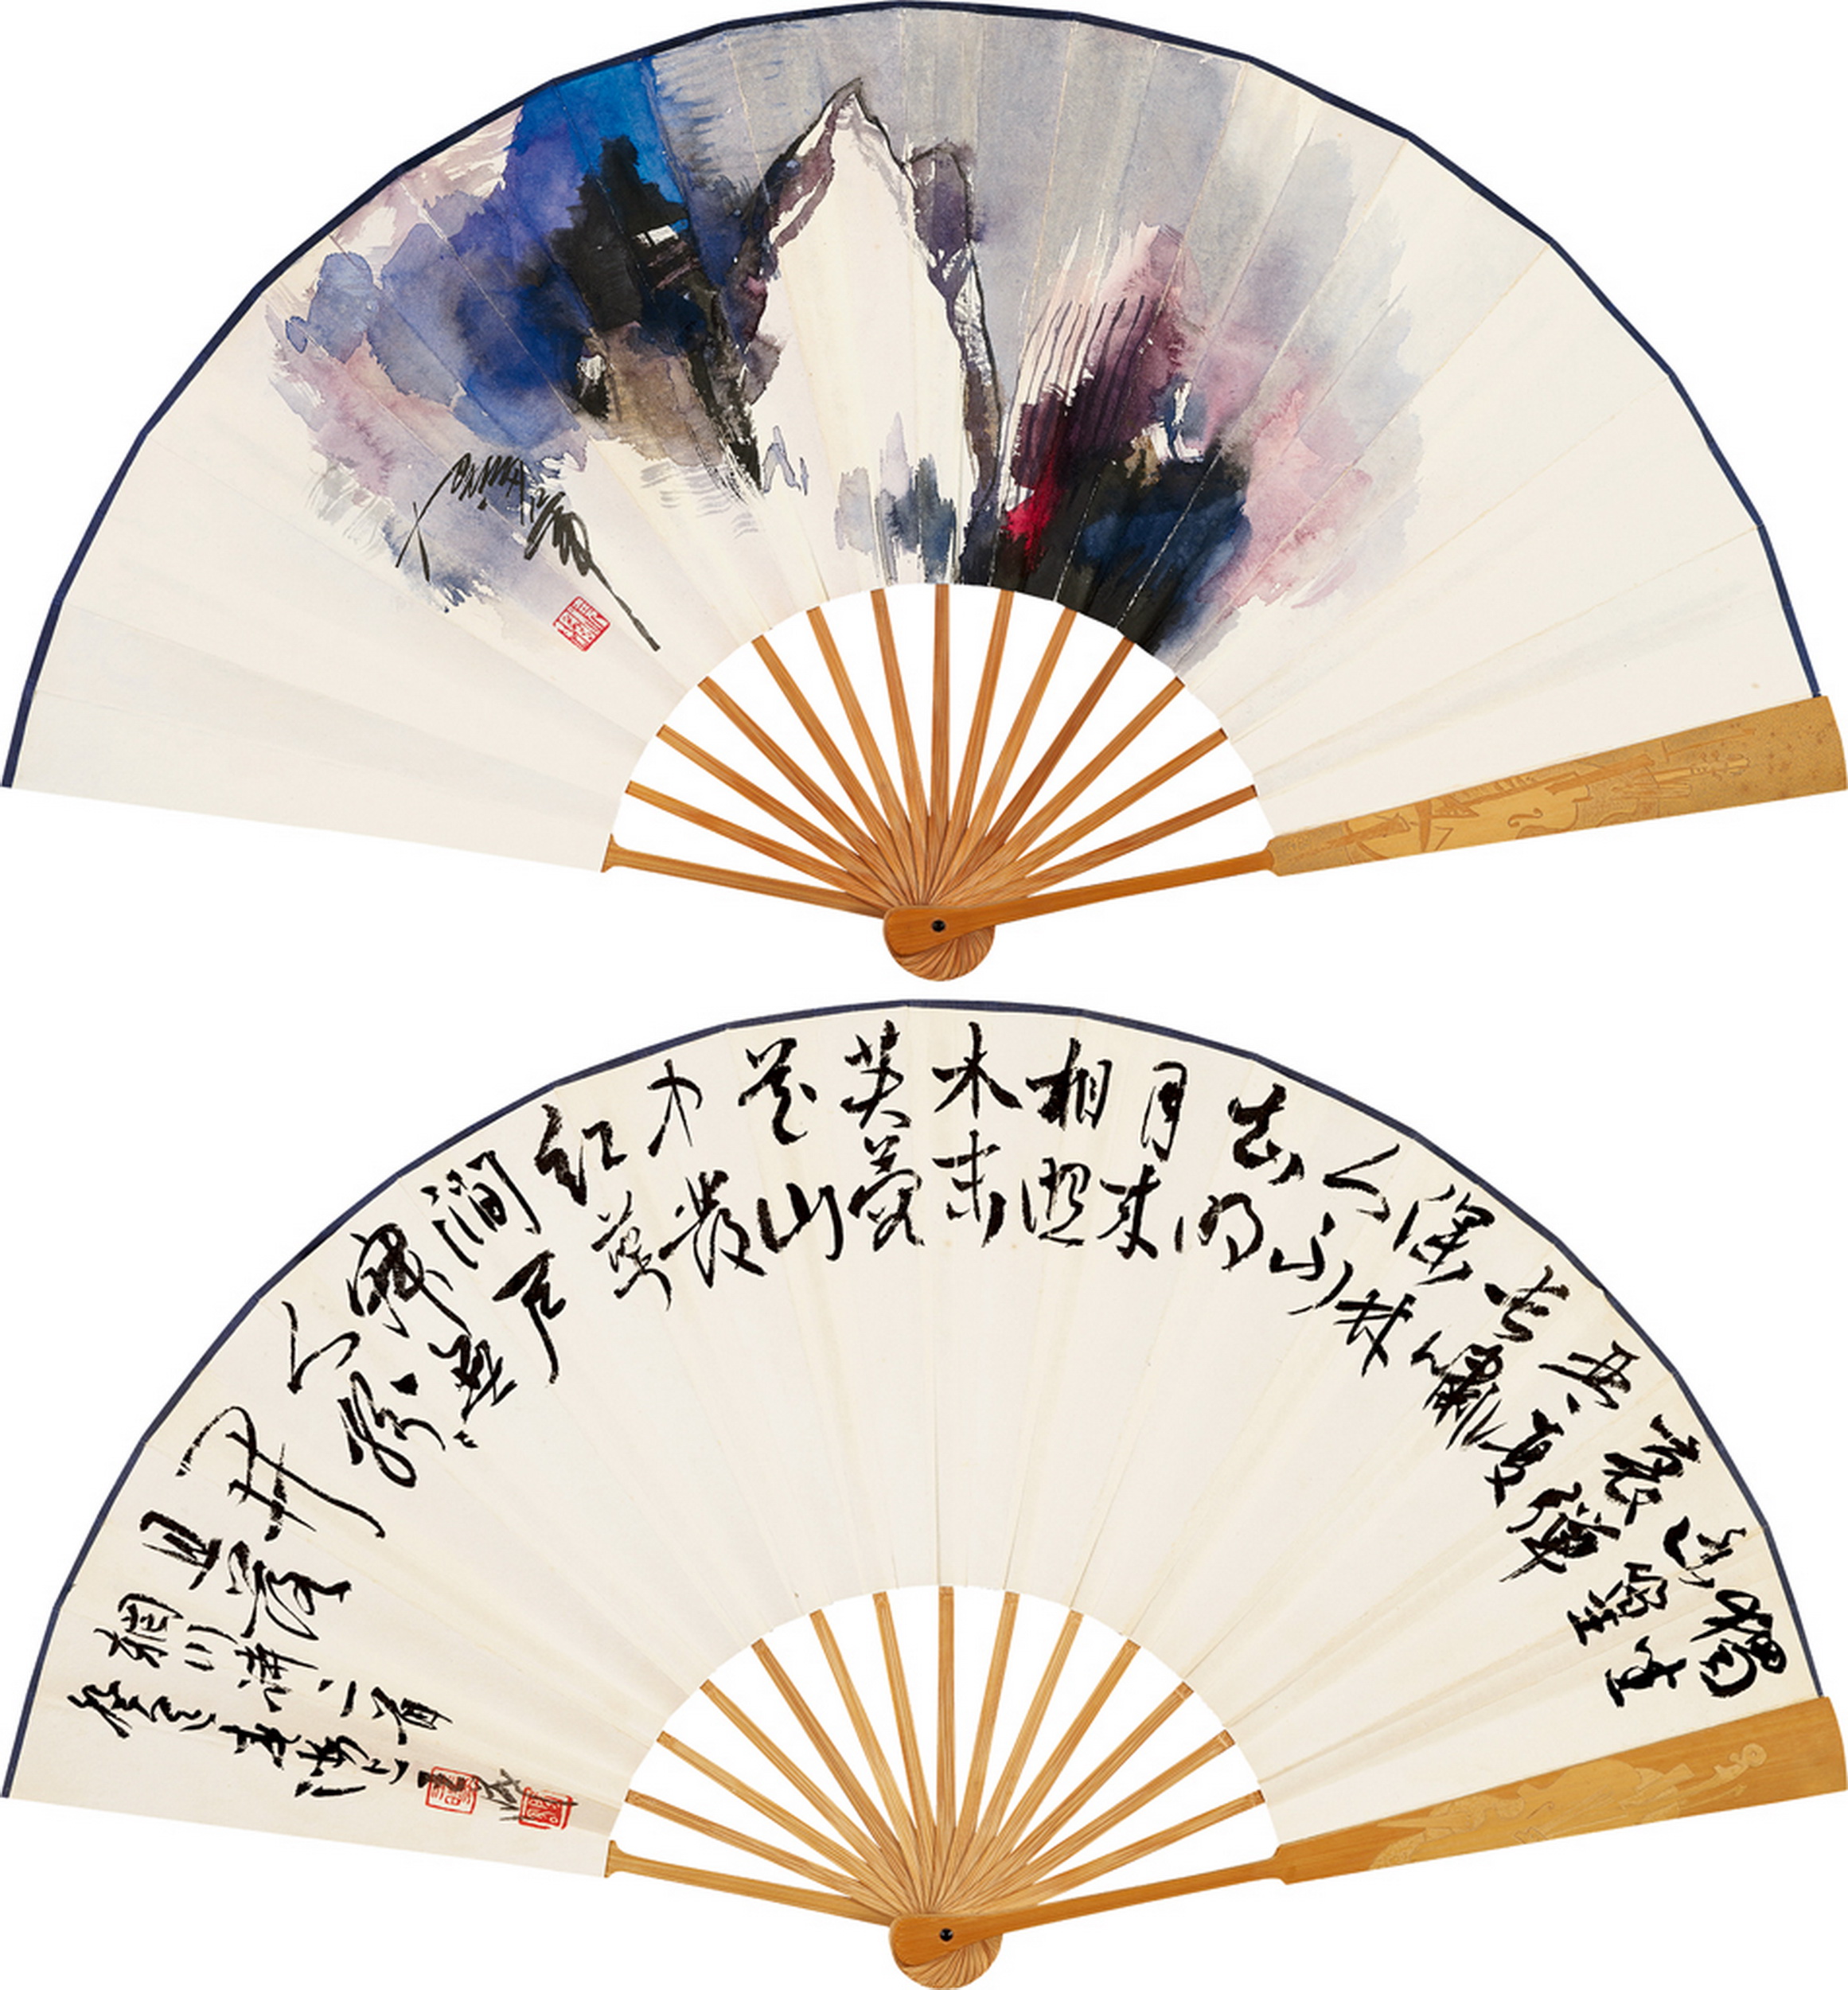 獨坐
幽篁
裏彈
琴復
長嘯
深林
人不
知明
月來
相照
木末
芙蓉
花山
中發
紅萼
澗戶
寂無
人紛
開
且落
輞川詩二首